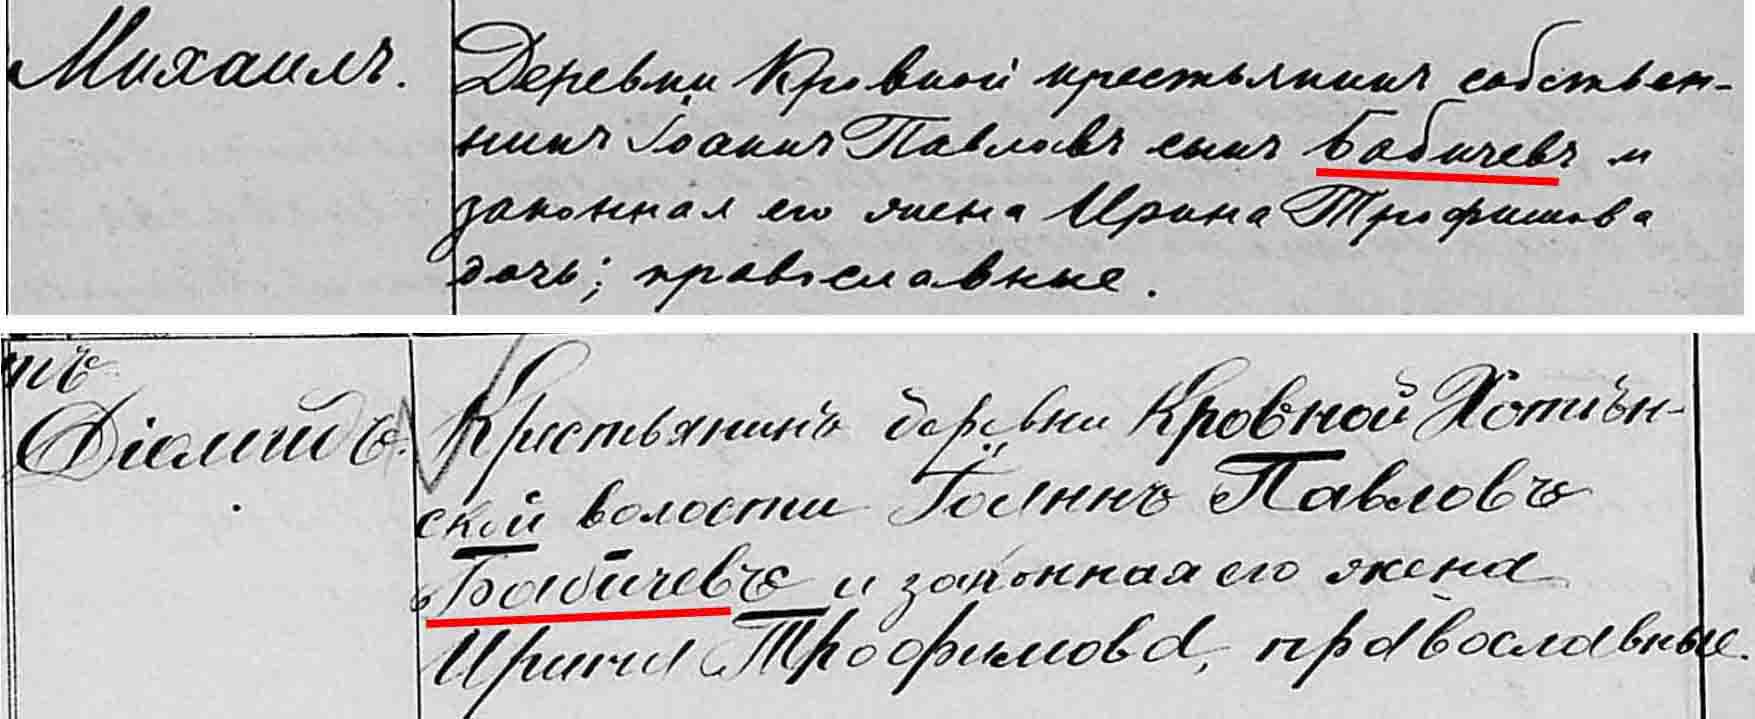 Михаилъ.
Деревни Кровной крестьянинъ собствен-
никъ Іоаннъ Павловъ сынъ Бабичевъ и
законная его жена Ирина Трофимова
дочь; православные.
нъ
Діомидъ.
Крестьянинъ деревни Кровной Хотѣн-
ской волости Іоаннъ Павловъ
Бабичевъ и законная его жена
Ирина Трофимова, православные.